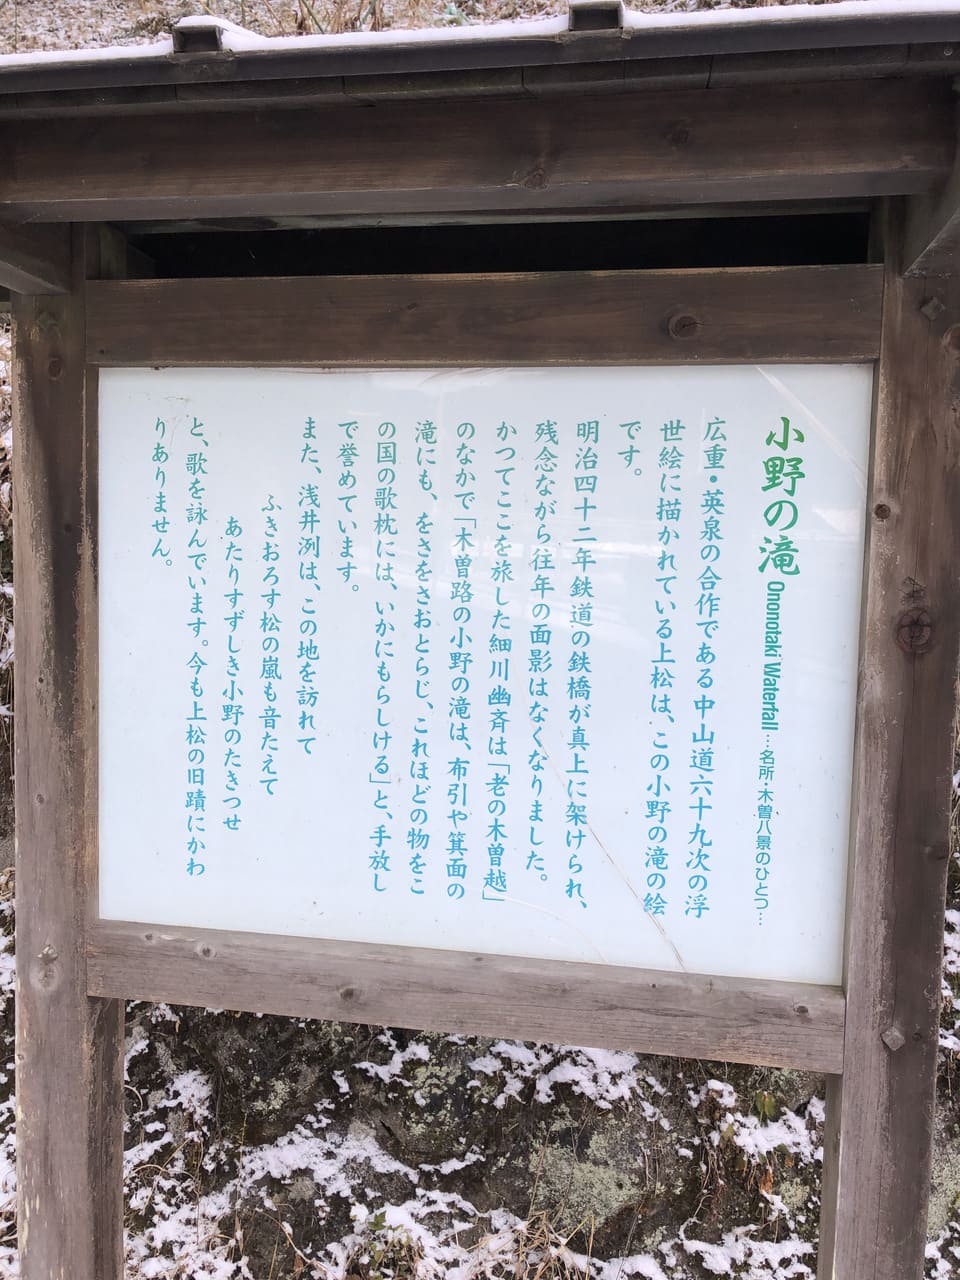 小野の滝 Ononotaki Waterfall…名所・木曽八景のひとつ…
広重・英泉の合作である中山道六十九次の浮
世絵に描かれている上松は、この小野の滝の絵
です。
明治四十二年鉄道の鉄橋が真上に架けられ、
残念ながら往年の面影はなくなりました。
かつてここを旅した細川幽斉は「老の木曽越」
のなかで「木曽路の小野の滝は、布引や箕面の
滝にも、をさをさおとらじ、これほどの物をこ
の国の歌枕には、いかにもらしける」と、手放し
で誉めています。
また、浅井洌は、この地を訪れて
ふきおろす松の嵐も音たえて
あたりすずしき小野のたきつせ
と、歌を詠んでいます。今も上松の旧蹟にかわ
りありません。